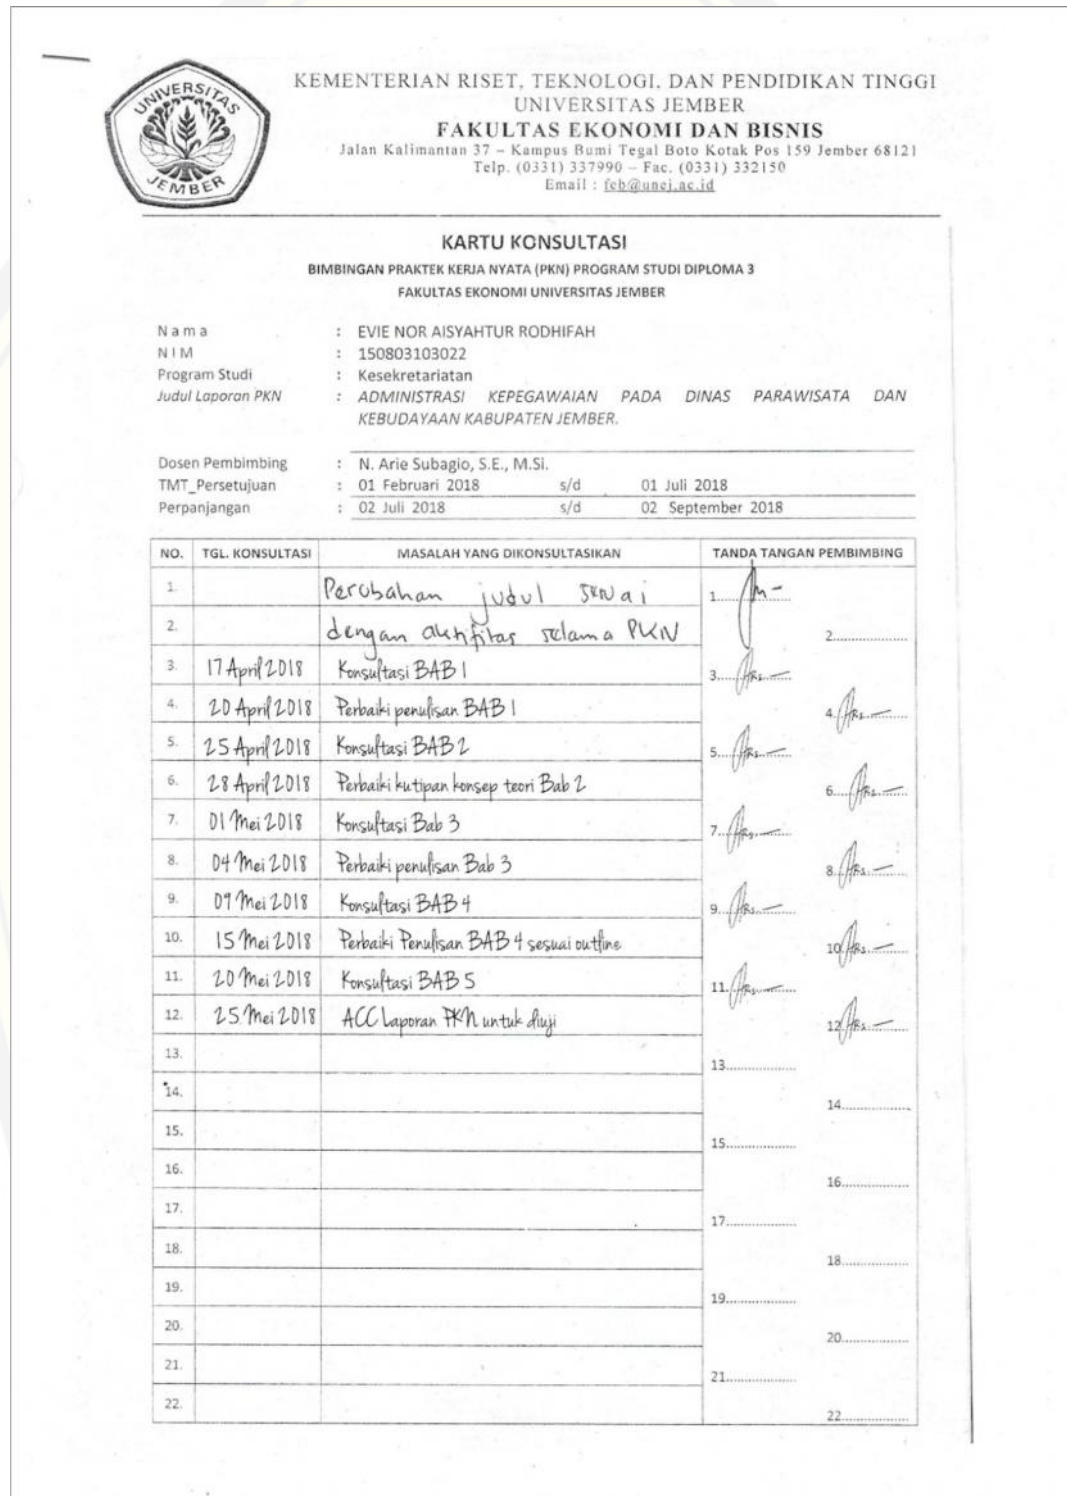 UNIVERSITAS
JEMBER
KEMENTERIAN RISET, TEKNOLOGI, DAN PENDIDIKAN TINGGI
UNIVERSITAS JEMBER
FAKULTAS EKONOMI DAN BISNIS
Jalan Kalimantan 37 – Kampus Bumi Tegal Boto Kotak Pos 159 Jember 68121
Telp. (0331) 337990 – Fac. (0331) 332150
Email : feb@unej.ac.id
KARTU KONSULTASI
BIMBINGAN PRAKTEK KERJA NYATA (PKN) PROGRAM STUDI DIPLOMA 3
FAKULTAS EKONOMI UNIVERSITAS JEMBER
N a m a : EVIE NOR AISYAHTUR RODHIFAH
N I M : 150803103022
Program Studi : Kesekretariatan
Judul Laporan PKN : ADMINISTRASI KEPEGAWAIAN PADA DINAS PARAWISATA DAN
KEBUDAYAAN KABUPATEN JEMBER.
Dosen Pembimbing : N. Arie Subagio, S.E., M.Si.
TMT_Persetujuan : 01 Februari 2018 s/d 01 Juli 2018
Perpanjangan : 02 Juli 2018 s/d 02 September 2018
NO. TGL. KONSULTASI MASALAH YANG DIKONSULTASIKAN TANDA TANGAN PEMBIMBING
1. Perubahan judul 1.........
2. dengan aktifitas selama PKN 2.........
3. 17 April 2018 Konsultasi BAB 1 3.........
4. 20 April 2018 Perbaiki penulisan BAB 1 4.........
5. 25 April 2018 Konsultasi BAB 2 5.........
6. 28 April 2018 Perbaiki kutipan konsep teori Bab 2 6.........
7. 01 Mei 2018 Konsultasi Bab 3 7.........
8. 04 Mei 2018 Perbaiki penulisan Bab 3 8.........
9. 09 Mei 2018 Konsultasi BAB 4 9.........
10. 15 Mei 2018 Perbaiki Penulisan BAB 4 sesuai outline 10.........
11. 20 Mei 2018 Konsultasi BAB 5 11.........
12. 25 Mei 2018 ACC Laporan PKN untuk diuji 12.........
13. 13.........
14. 14.........
15. 15.........
16. 16.........
17. 17.........
18. 18.........
19. 19.........
20. 20.........
21. 21.........
22. 22.........